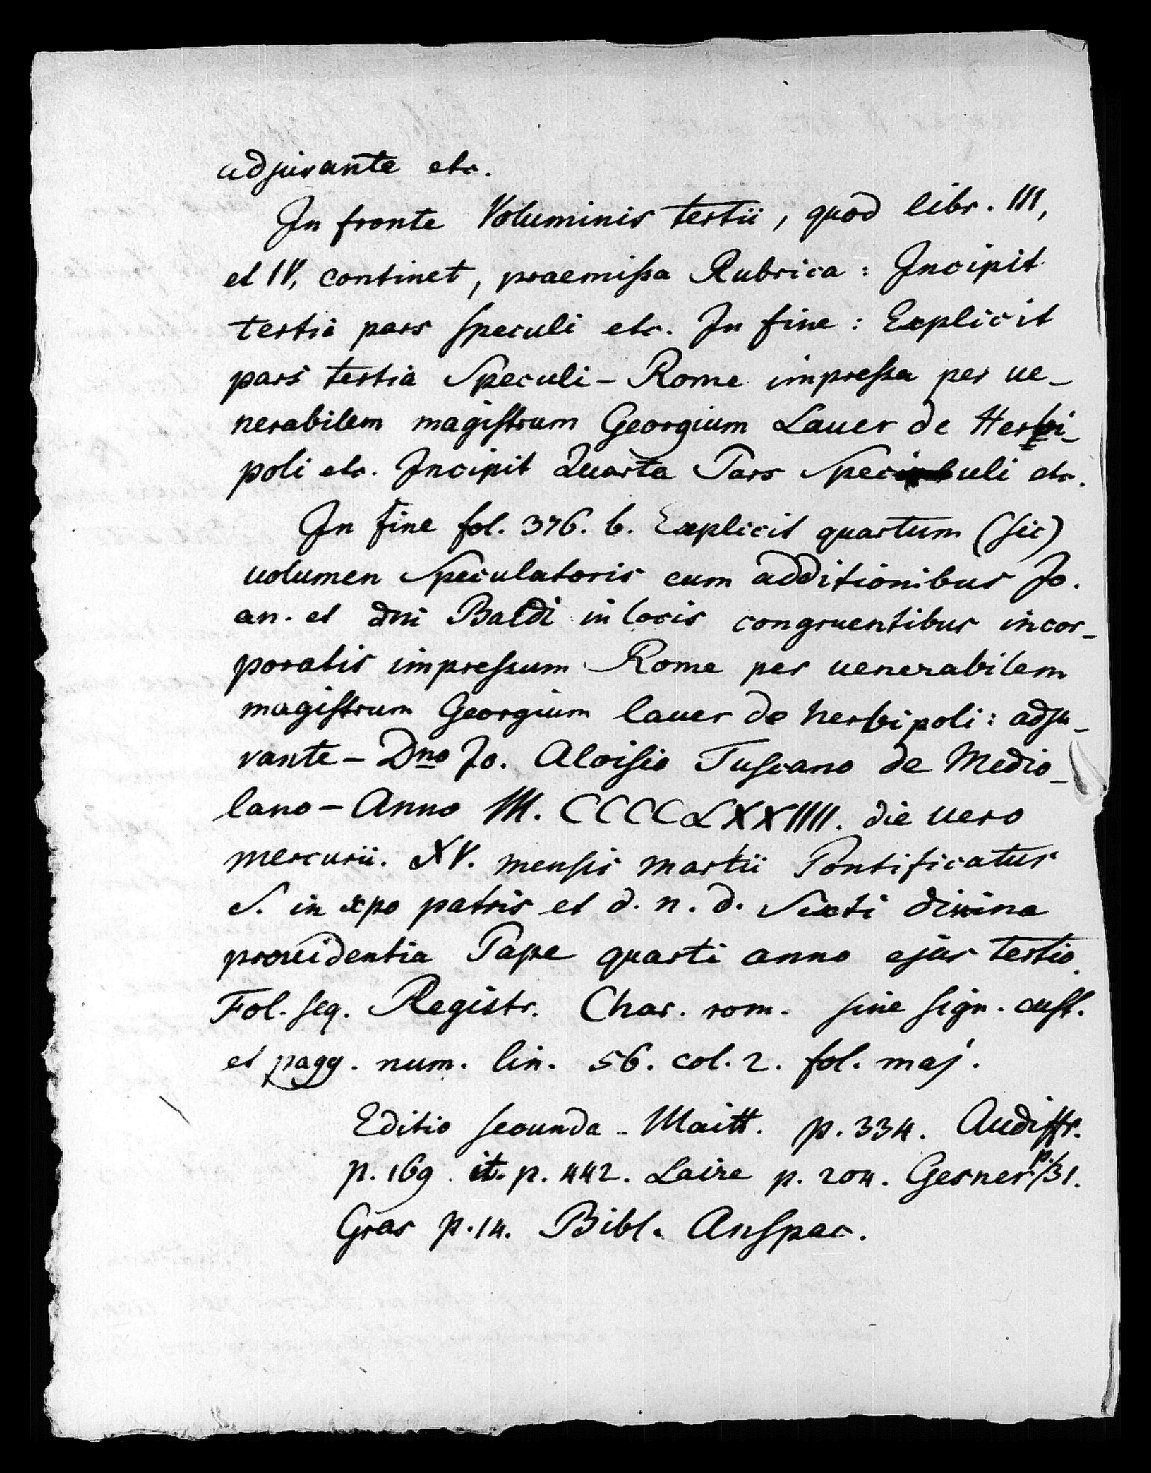 adjuvante etc.
In fronte Voluminis tertii, quod libr. III,
et IV, continet, praemissa Rubrica: Incipit
tertia pars speculi etc. In fine: Explicit
pars tertia Speculi – Rome impressa per ue-
nerabilem magistrum Georgium Lauer de Herbi-
poli etc. Incipit Quarta Pars Speculi etc.
In fine fol. 376. b. Explicit quartum (sic)
uolumen Speculatoris cum additionibus Jo.
an. et dni Baldi in locis congruentibus incor-
poratis impressum Rome per uenerabilem
magistrum Georgium lauer de herbipoli: adju-
vante – Dno Jo. Aloisio Tuscano de Medio-
lano – Anno M. CCCCLXXIIII. die uero
mercurii. XV. mensis martii Pontificatus
S. in xpo patris et d. n. d. Sixti diuina
prouidentia Pape quarti anno ejus tertio.
Fol. seq. Registr. Char. rom. sine sign. cust.
et pagg. num. lin. 56. col. 2. fol. maj.
Editio secunda – Maitt. p. 334. Audiffr.
p. 169. it. p. 442. Laire p. 204. Gesner p. 31.
Gras p. 14. Bibl. Anspac.